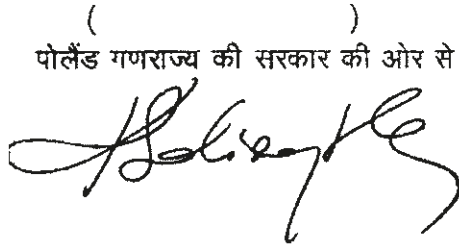 ( )
पोलैंड गणराज्य की सरकार की ओर से